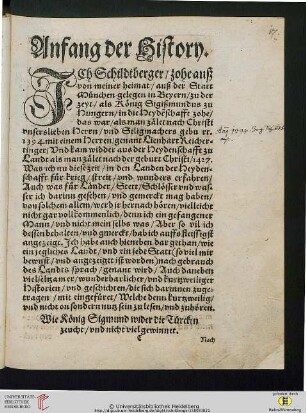 Anfang der History.
JCh Schildtberger / zohe auß
von meiner heimat / auß der Statt
München gelegen in Beyern / zu der
zeyt / als König Sigißmundus zu
Hungern / in die Heydeschafft zohe /
das war / als man zalt nach Christi
vnsers lieben Herrn / vnd Seligmachers geburt.
1394. mit einem Herren genant Lienhart Reicher-
tinger / Vnd kam widder auß der Heydenschafft zu
Land / als man zalet nach der geburt Christi / 1427.
Was ich nu die zeyt / in den Landen der Heyden-
schafft für krieg / streit / vnd wunders erfahren /
Auch was für Länder / Stett / Schlösser vnd was-
ser ich darinn gesehen / vnd gemerckt mag haben /
von solchem allem / werd jr hernach hören / vielleicht
nicht gar vollkommenlich / denn ich ein gefangener
Mann / vnd nicht mein selbs was / Aber so vil ich
des hab behalten / vnd gemerckt / hab ich auffs fleyssigst
angezeigt. Jch habe auch hieneben dar gethan / wie
ein jegliches Land / vnd ein jede Statt / so viel mir
bewust / vnd angezeygt ist worden / nach gebrauch
des Lands sprach / genant wird / Auch daneben
viel seltzamer / wunderbarlicher / vnd kurtzweiliger
Historien / vnd geschichten / die sich darinnen zuge-
tragen / mit eingefüret / Welche denn kurtzweilig /
vnd nicht on sondern nutz sein zu lesen / vnd zuhören.
Wie König Sigmund wider die Türcken
zeucht / vnd nicht viel gewinnet.
Nach
UNIVERSITÄTS-
BIBLIOTHEK
HEIDELBERG
© Universitätsbibliothek Heidelberg